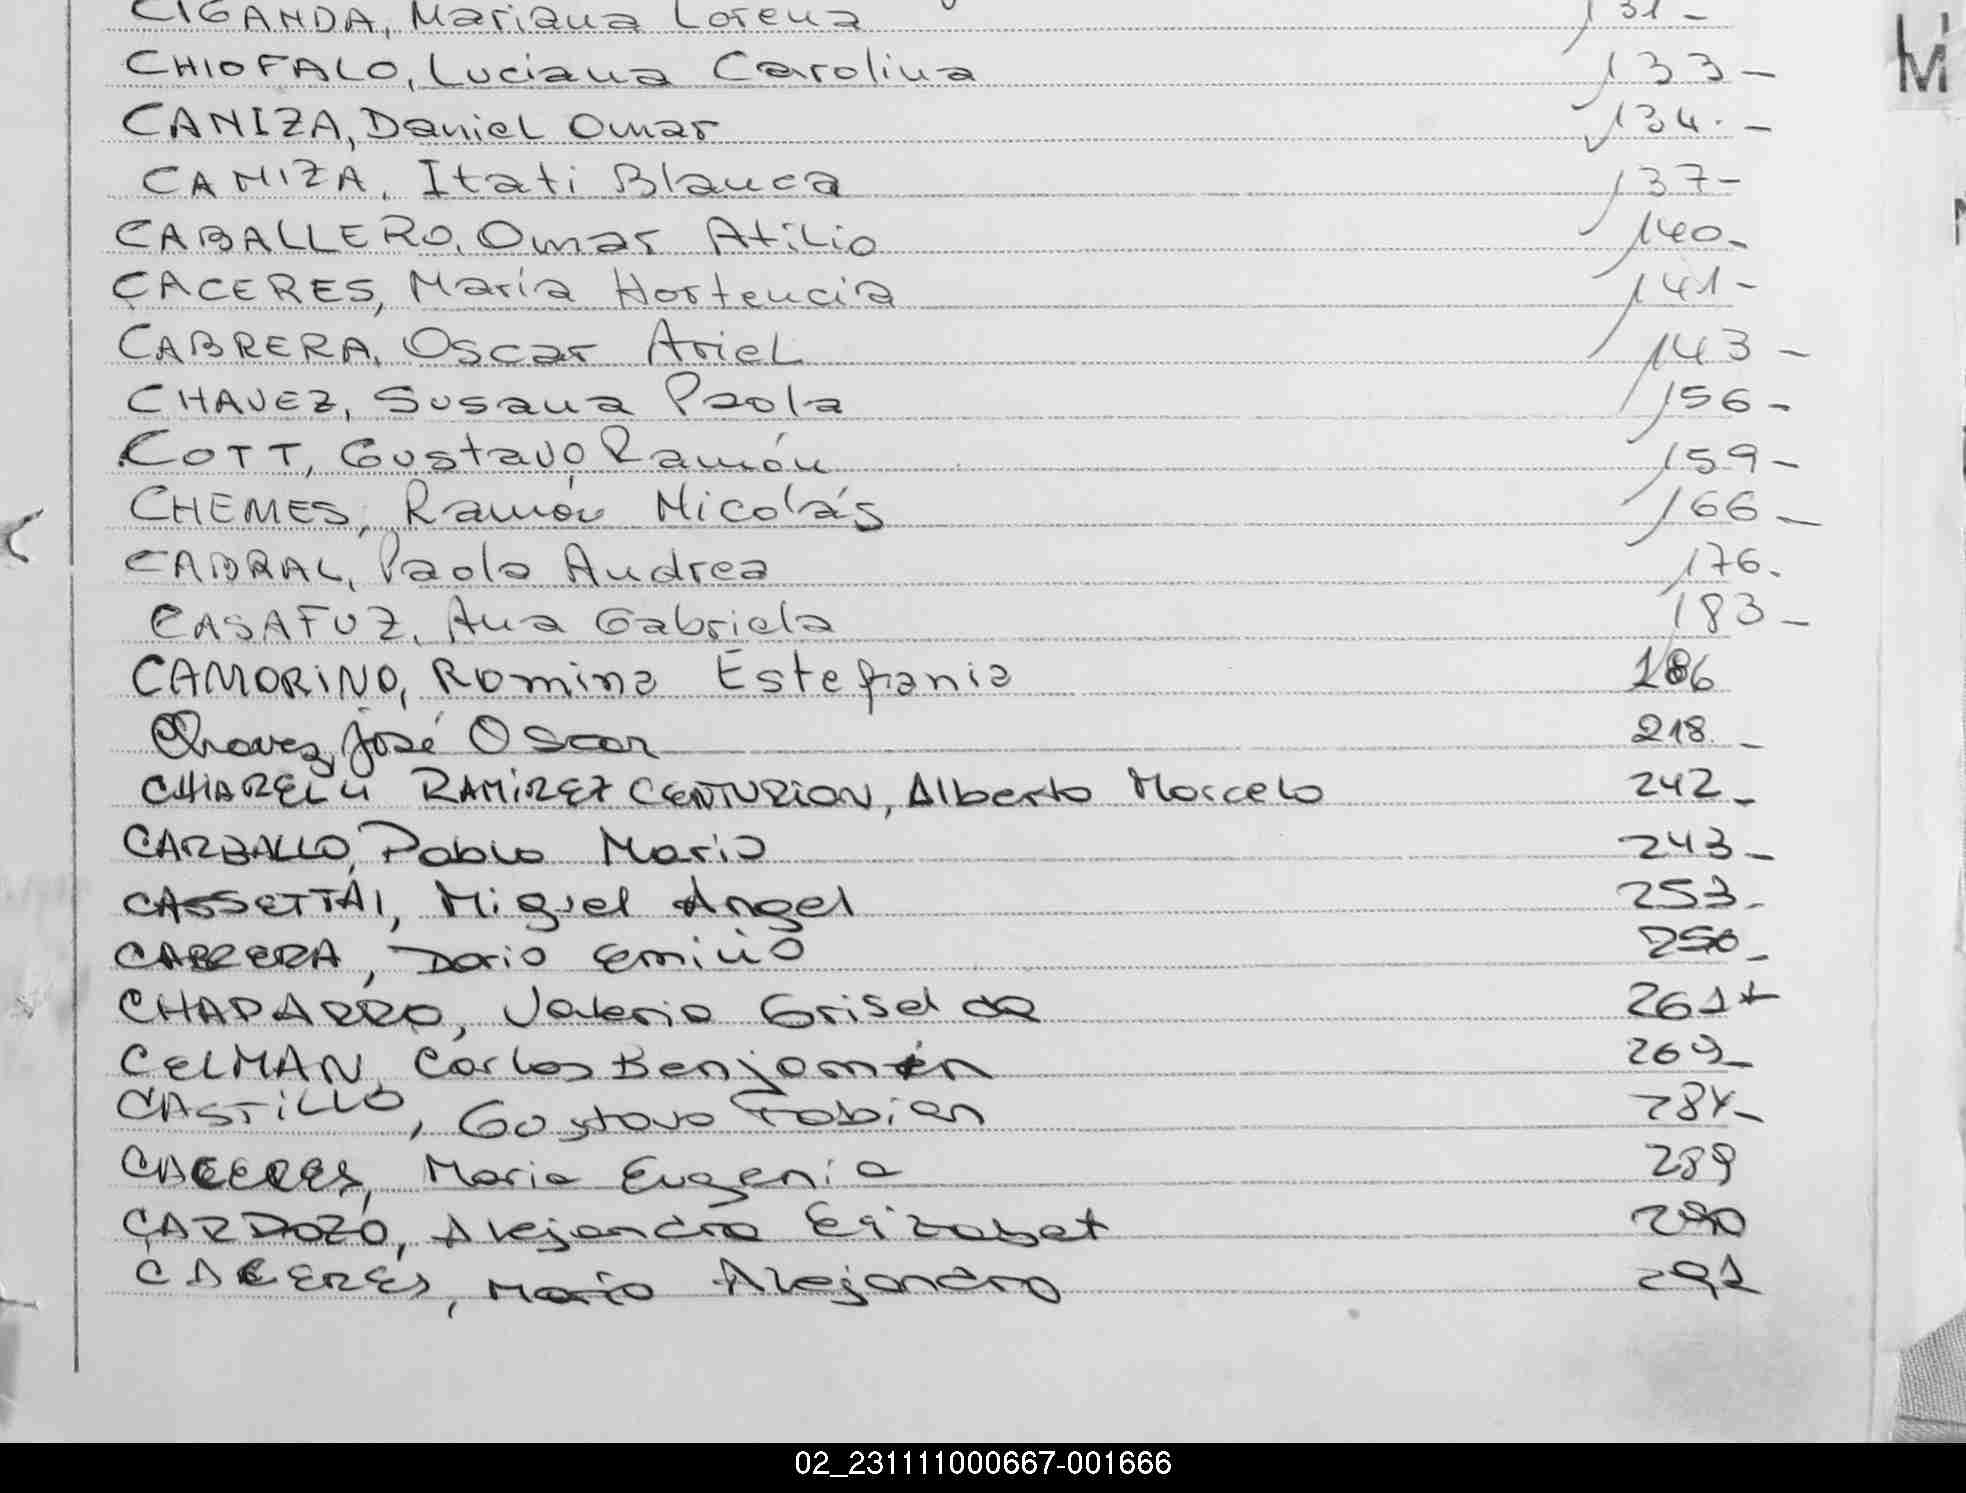 CIGANDA, Mariana Lorena 131 -
CHIOFALO, Luciana Carolina 133 -
CANIZA, Daniel Omar 134. -
CANIZA, Itati Blanca 137 -
CABALLERO, Omar Atilio 140 -
CACERES, María Hortencia 141 -
CABRERA, Oscar Ariel 143 -
CHAVEZ, Susana Paola 156 -
COTT, Gustavo Ramón 159 -
CHEMES, Ramón Nicolás 166 -
CABRAL, Paola Andrea 176.
CASAFUZ, Ana Gabriela 183 -
CAMORINO, Romina Estefania 186
Chavez, José Oscar 218. -
CHIARELLI RAMIREZ CENTURION, Alberto Marcelo 242 -
CARBALLO, Pablo Mario 243 -
CASSETTAI, Miguel Angel 253 -
CABRERA, Dario Emilio 256 -
CHAPARRO, Valeria Griselda 261 *
CELMAN, Carlos Benjamín 269 -
CASTILLO, Gustavo Fabian 284 -
CACERES, Maria Eugenia 289
CARDOZO, Alejandra Elizabet 290
CACERES, Mario Alejandro 291
M
02_231111000667-001666